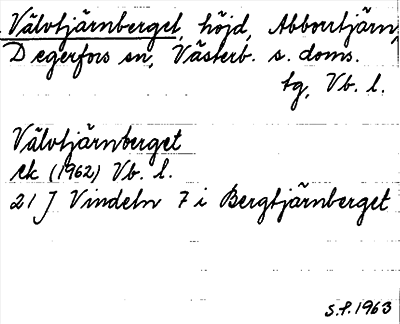 Välvtjärnberget, höjd, Abborrtjärn,
Degerfors sn, Västerb. s. doms.
tg, Vb. l.
Välvtjärnberget
ek (1962) Vb. l.
21 J Vindeln 7 i Bergtjärnberget
S.P. 1963